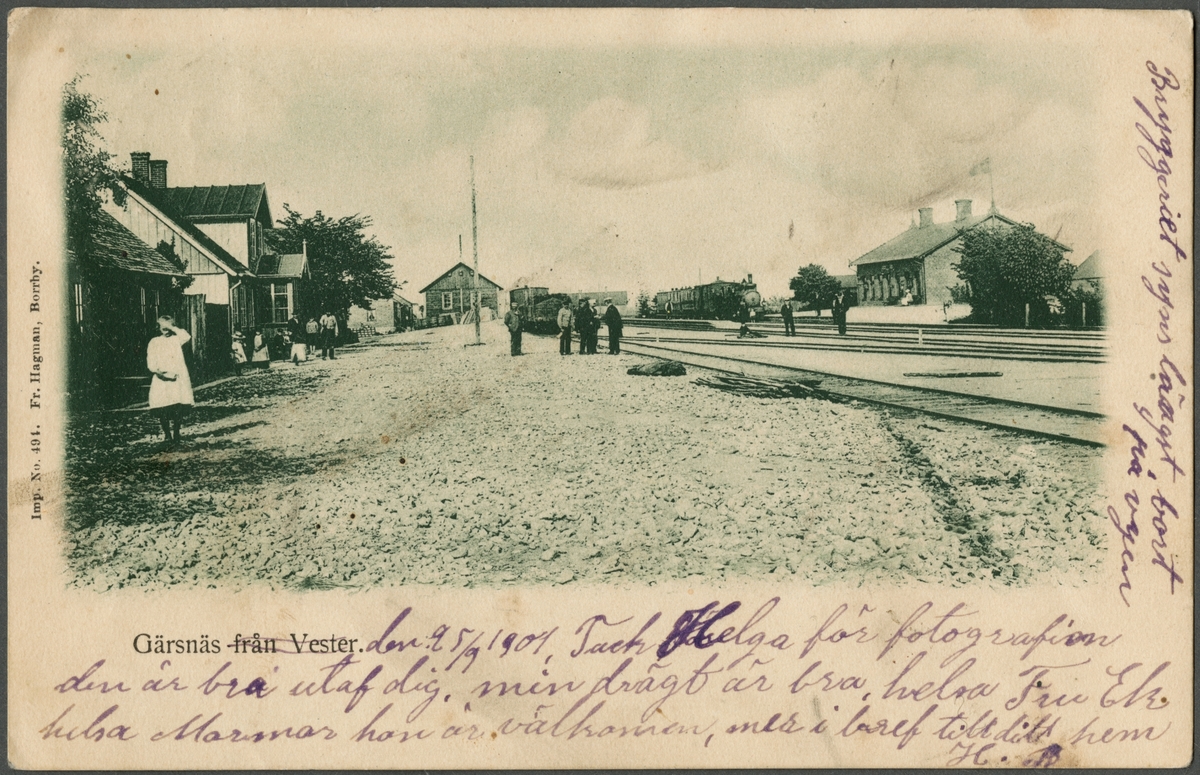 Bryggeriet syns längst bort
på vyen
Imp. No. 491. Fr. Hagman, Borrby.
Gärsnäs från Vester. den 25/9 1901, Tack Helga för fotografien
den är bra utaf dig, min drägt är bra, helsa Fru Ek.
helsa Mormor hon är välkomen, mer i bref till ditt hem
H. B